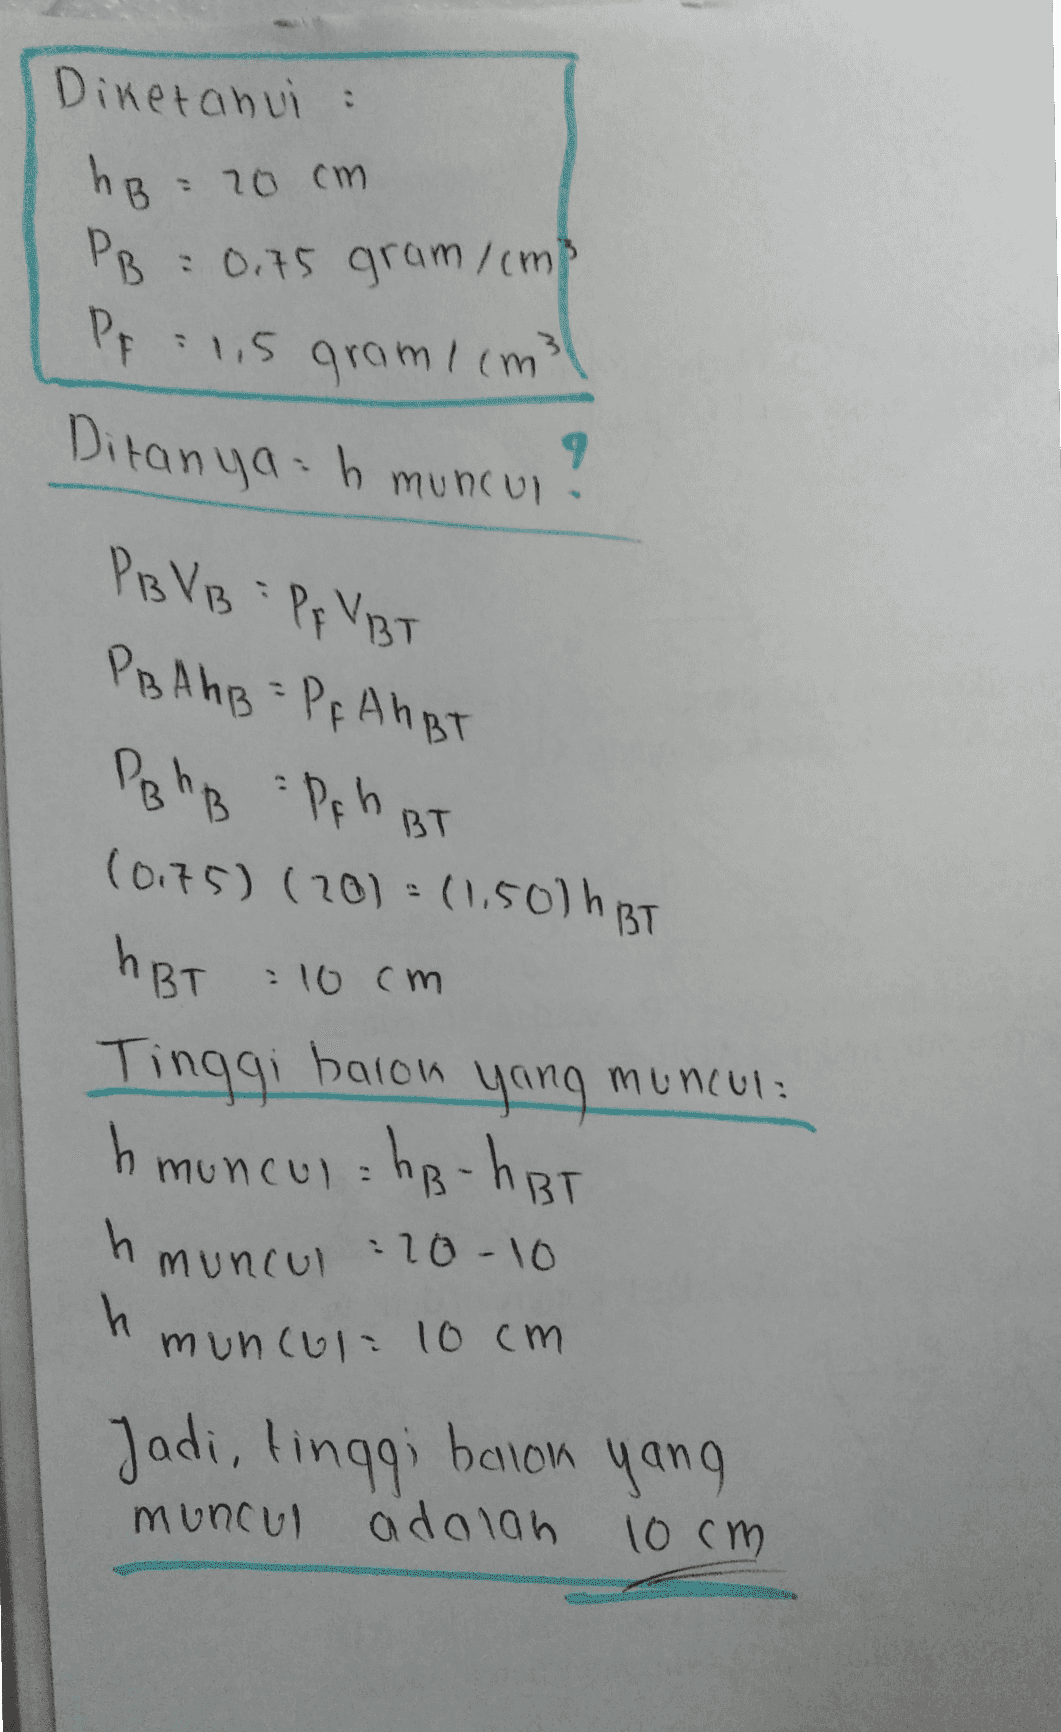 Diketahui :
hB = 20 cm
PB = 0,75 gram/cm³
PF = 1,5 gram/cm³
Ditanya = h muncul ?
PB VB = PF VBT
PB AhB = PF AhBT
PB hB = PF h BT
(0,75) (20) = (1,50) h BT
h BT = 10 cm
Tinggi balok yang muncul :
h muncul = hB - hBT
h muncul = 20 - 10
h muncul = 10 cm
Jadi, tinggi balok yang
muncul adalah 10 cm